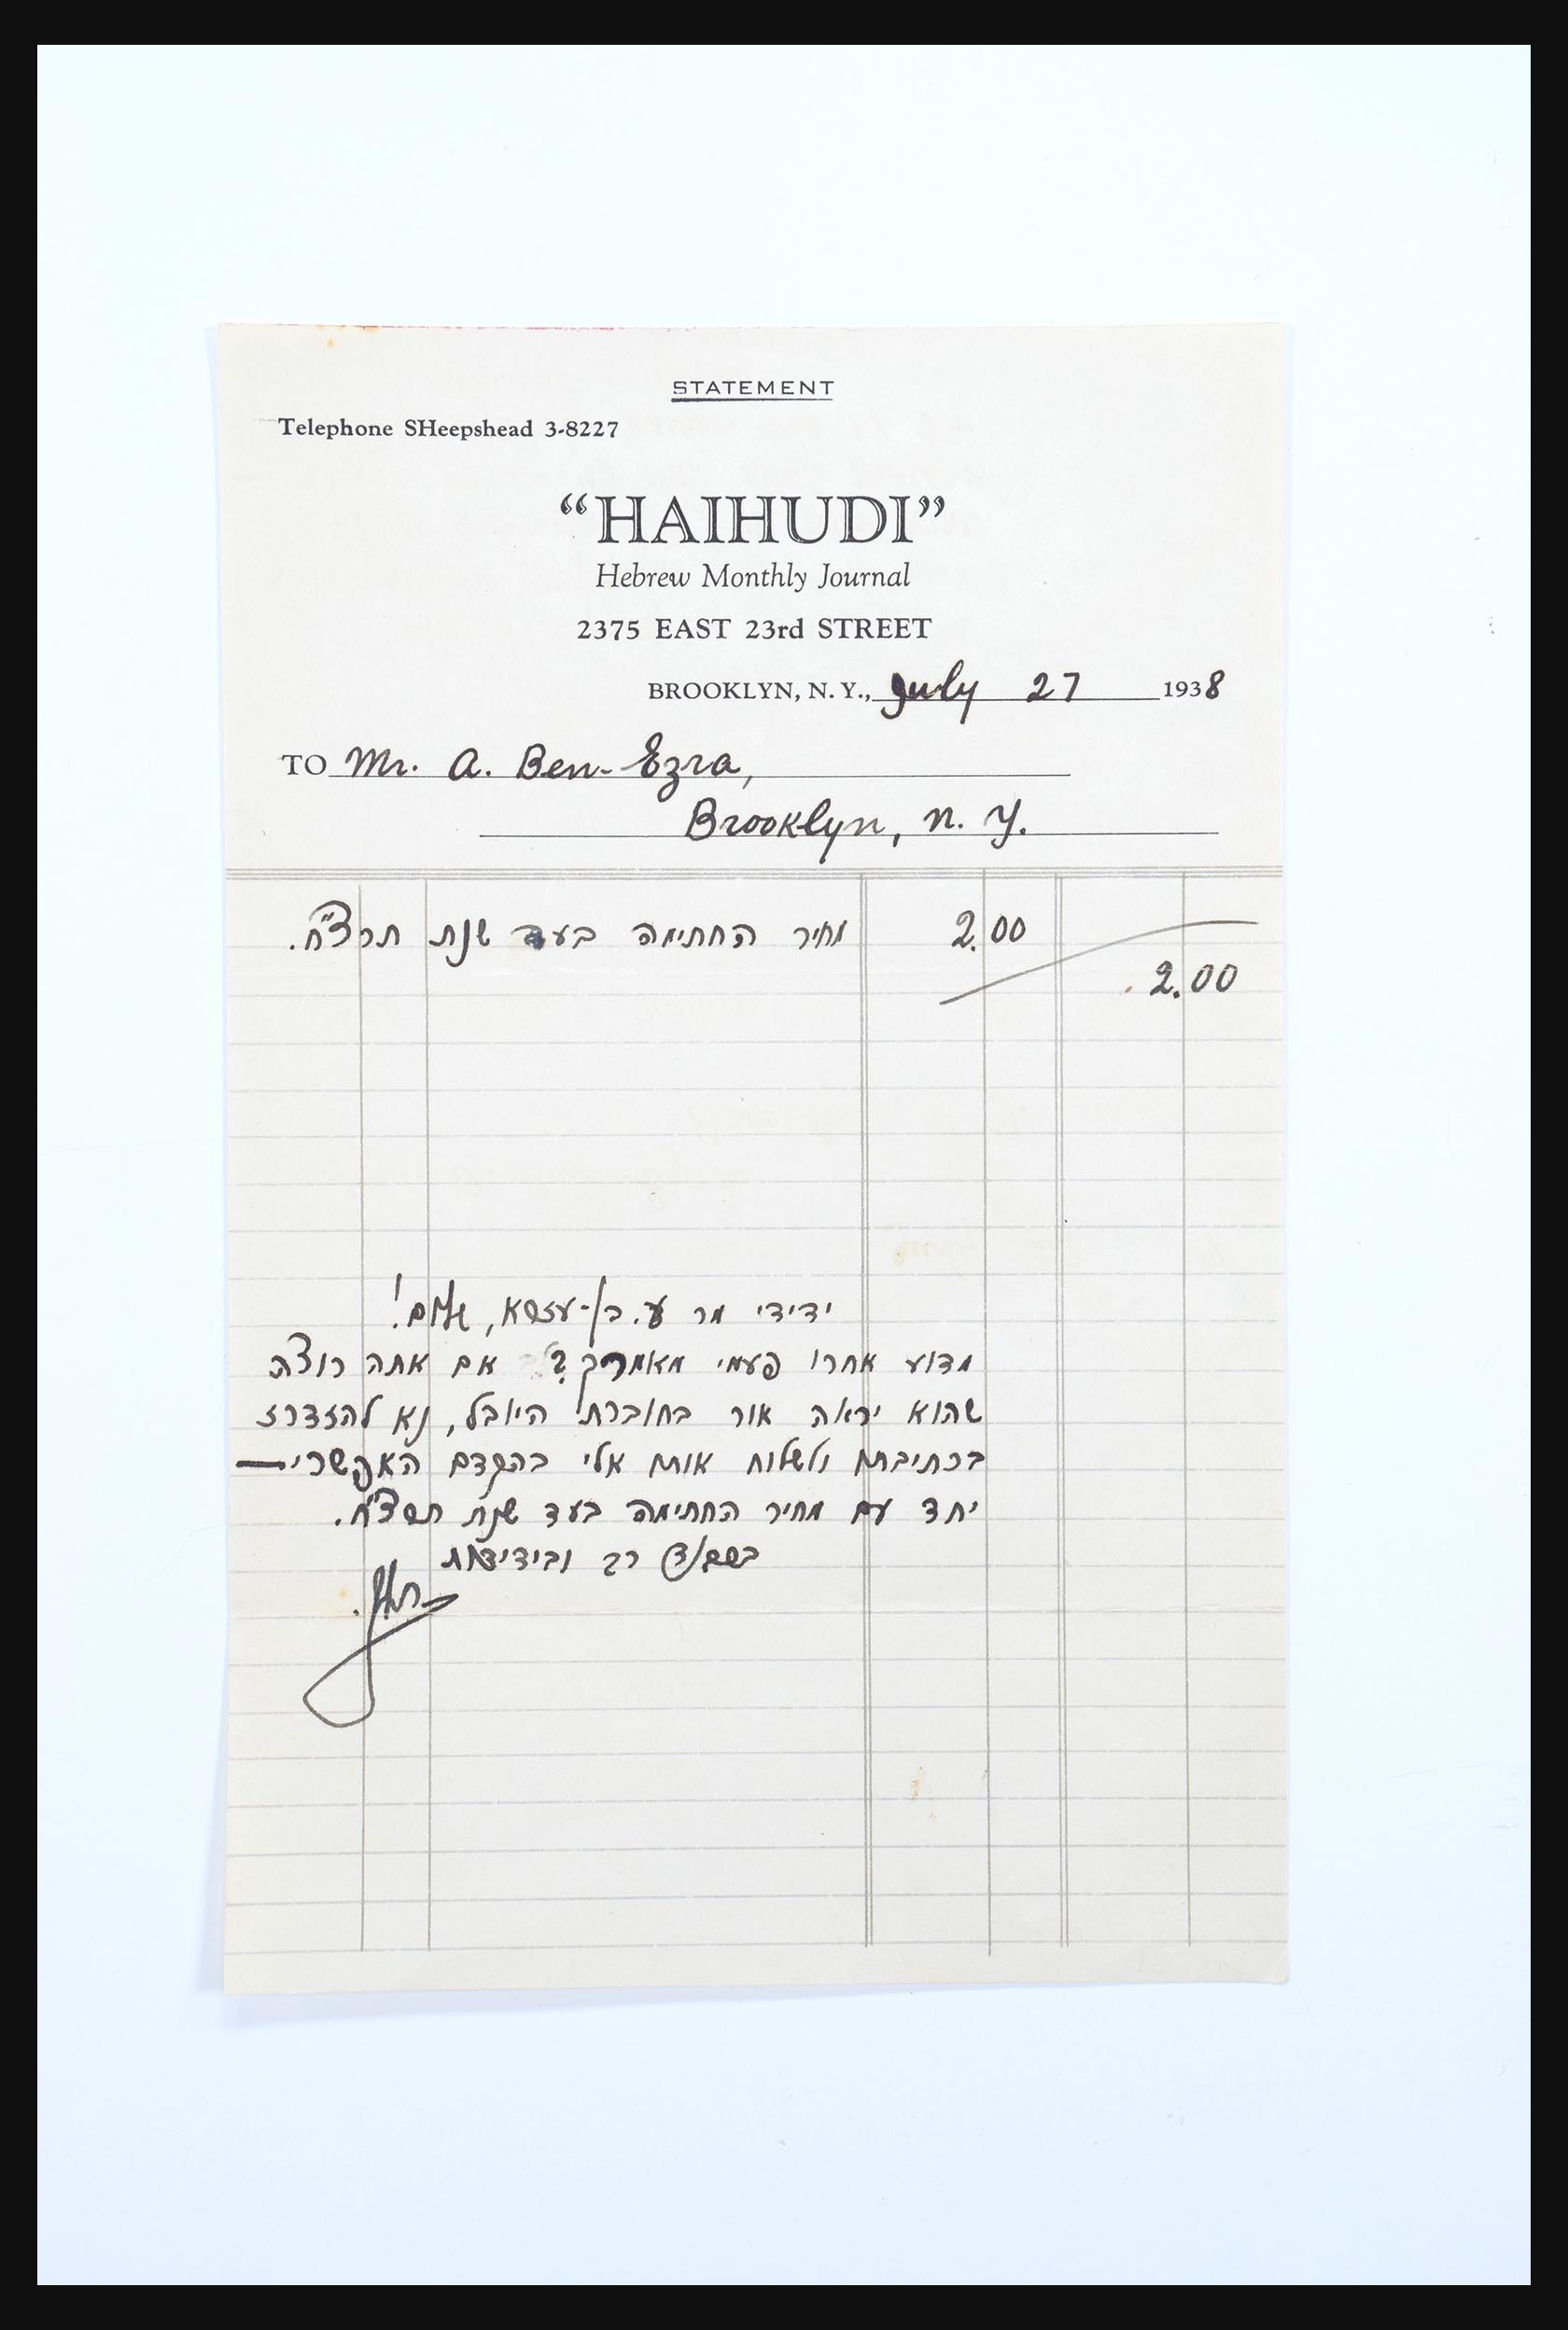 STATEMENT
Telephone SHeepshead 3-8227
“HAIHUDI”
Hebrew Monthly Journal
2375 EAST 23rd STREET
BROOKLYN, N. Y., July 27 1938
TO Mr. A. Ben-Ezra,
Brooklyn, N. Y.
מחיר החתימה בעד שנת תרצ"ח. 2.00
2.00
ידידי מר ע. בן-עזרא, שלום!
מדוע אחרו פעמי מאמרך? אם אתה רוצה
שהוא יראה אור בחוברת היובל, נא להזדרז
בכתיבתו ולשלוח אותו אלי בהקדם האפשרי—
יחד עם מחיר החתימה בעד שנת תרצ"ח.
רב ובידידות